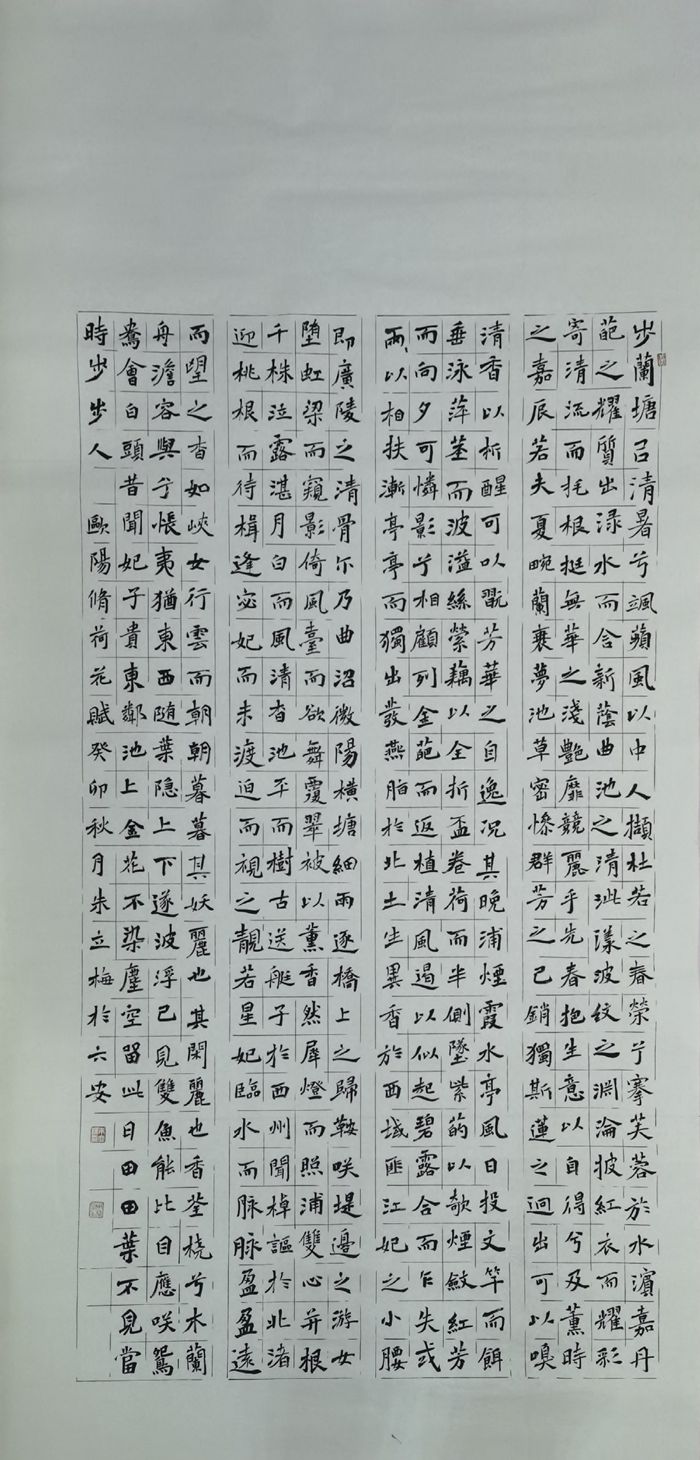 步蘭塘以清暑兮颯蘋風以中人擷杜若之春榮兮搴芙蓉於水濵嘉丹
葩之耀質出淥水而含新蔭曲池之清泚漾波紋之淵淪披紅衣而耀彩
寄清流而托根挺無華之淺艷靡競麗乎先春抱生意以自得兮及薰時
之嘉辰若夫夏畹蘭衰夢池草密慘群芳之已銷獨斯蓮之迥出可以嗅
清香以析醒可以翫芳華之自逸况其晚浦煙霞水亭風日投文竿而餌
垂泳萍莖而波溢絲縈藕以全折盃卷荷而半側墜紫菂以欹煙斂紅芳
而向夕可憐影兮相顧列金葩而返植清風遏以似起碧露合而乍失或
兩以相扶漸亭亭而獨出發燕脂於北土生異香於西域匪江妃之小腰
即廣陵之清骨尔乃曲沼微陽橫塘細雨逐橋上之歸鞍咲堤邊之游女
堕虹梁而窺影倚風臺而欲舞覆翠被以薰香然犀燈而照浦雙心并根
千株泣露湛月白而風清杳池平而樹古送艇子於西州聞棹謳於北渚
迎桃根而待楫逢宓妃而未渡迫而視之靚若星妃臨水而脉脉盈盈遠
而望之杳如峽女行雲而朝朝暮暮其妖麗也其閑麗也香荃橈兮木蘭
舟澹容與兮悵夷猶東西随葉隐上下遂波浮已見雙魚能比目應咲鴛
鴦會白頭昔聞妃子貴東鄰池上金花不染塵空留此日田田葉不見當
時步步人 歐陽脩荷花賦癸卯秋月朱立梅於六安